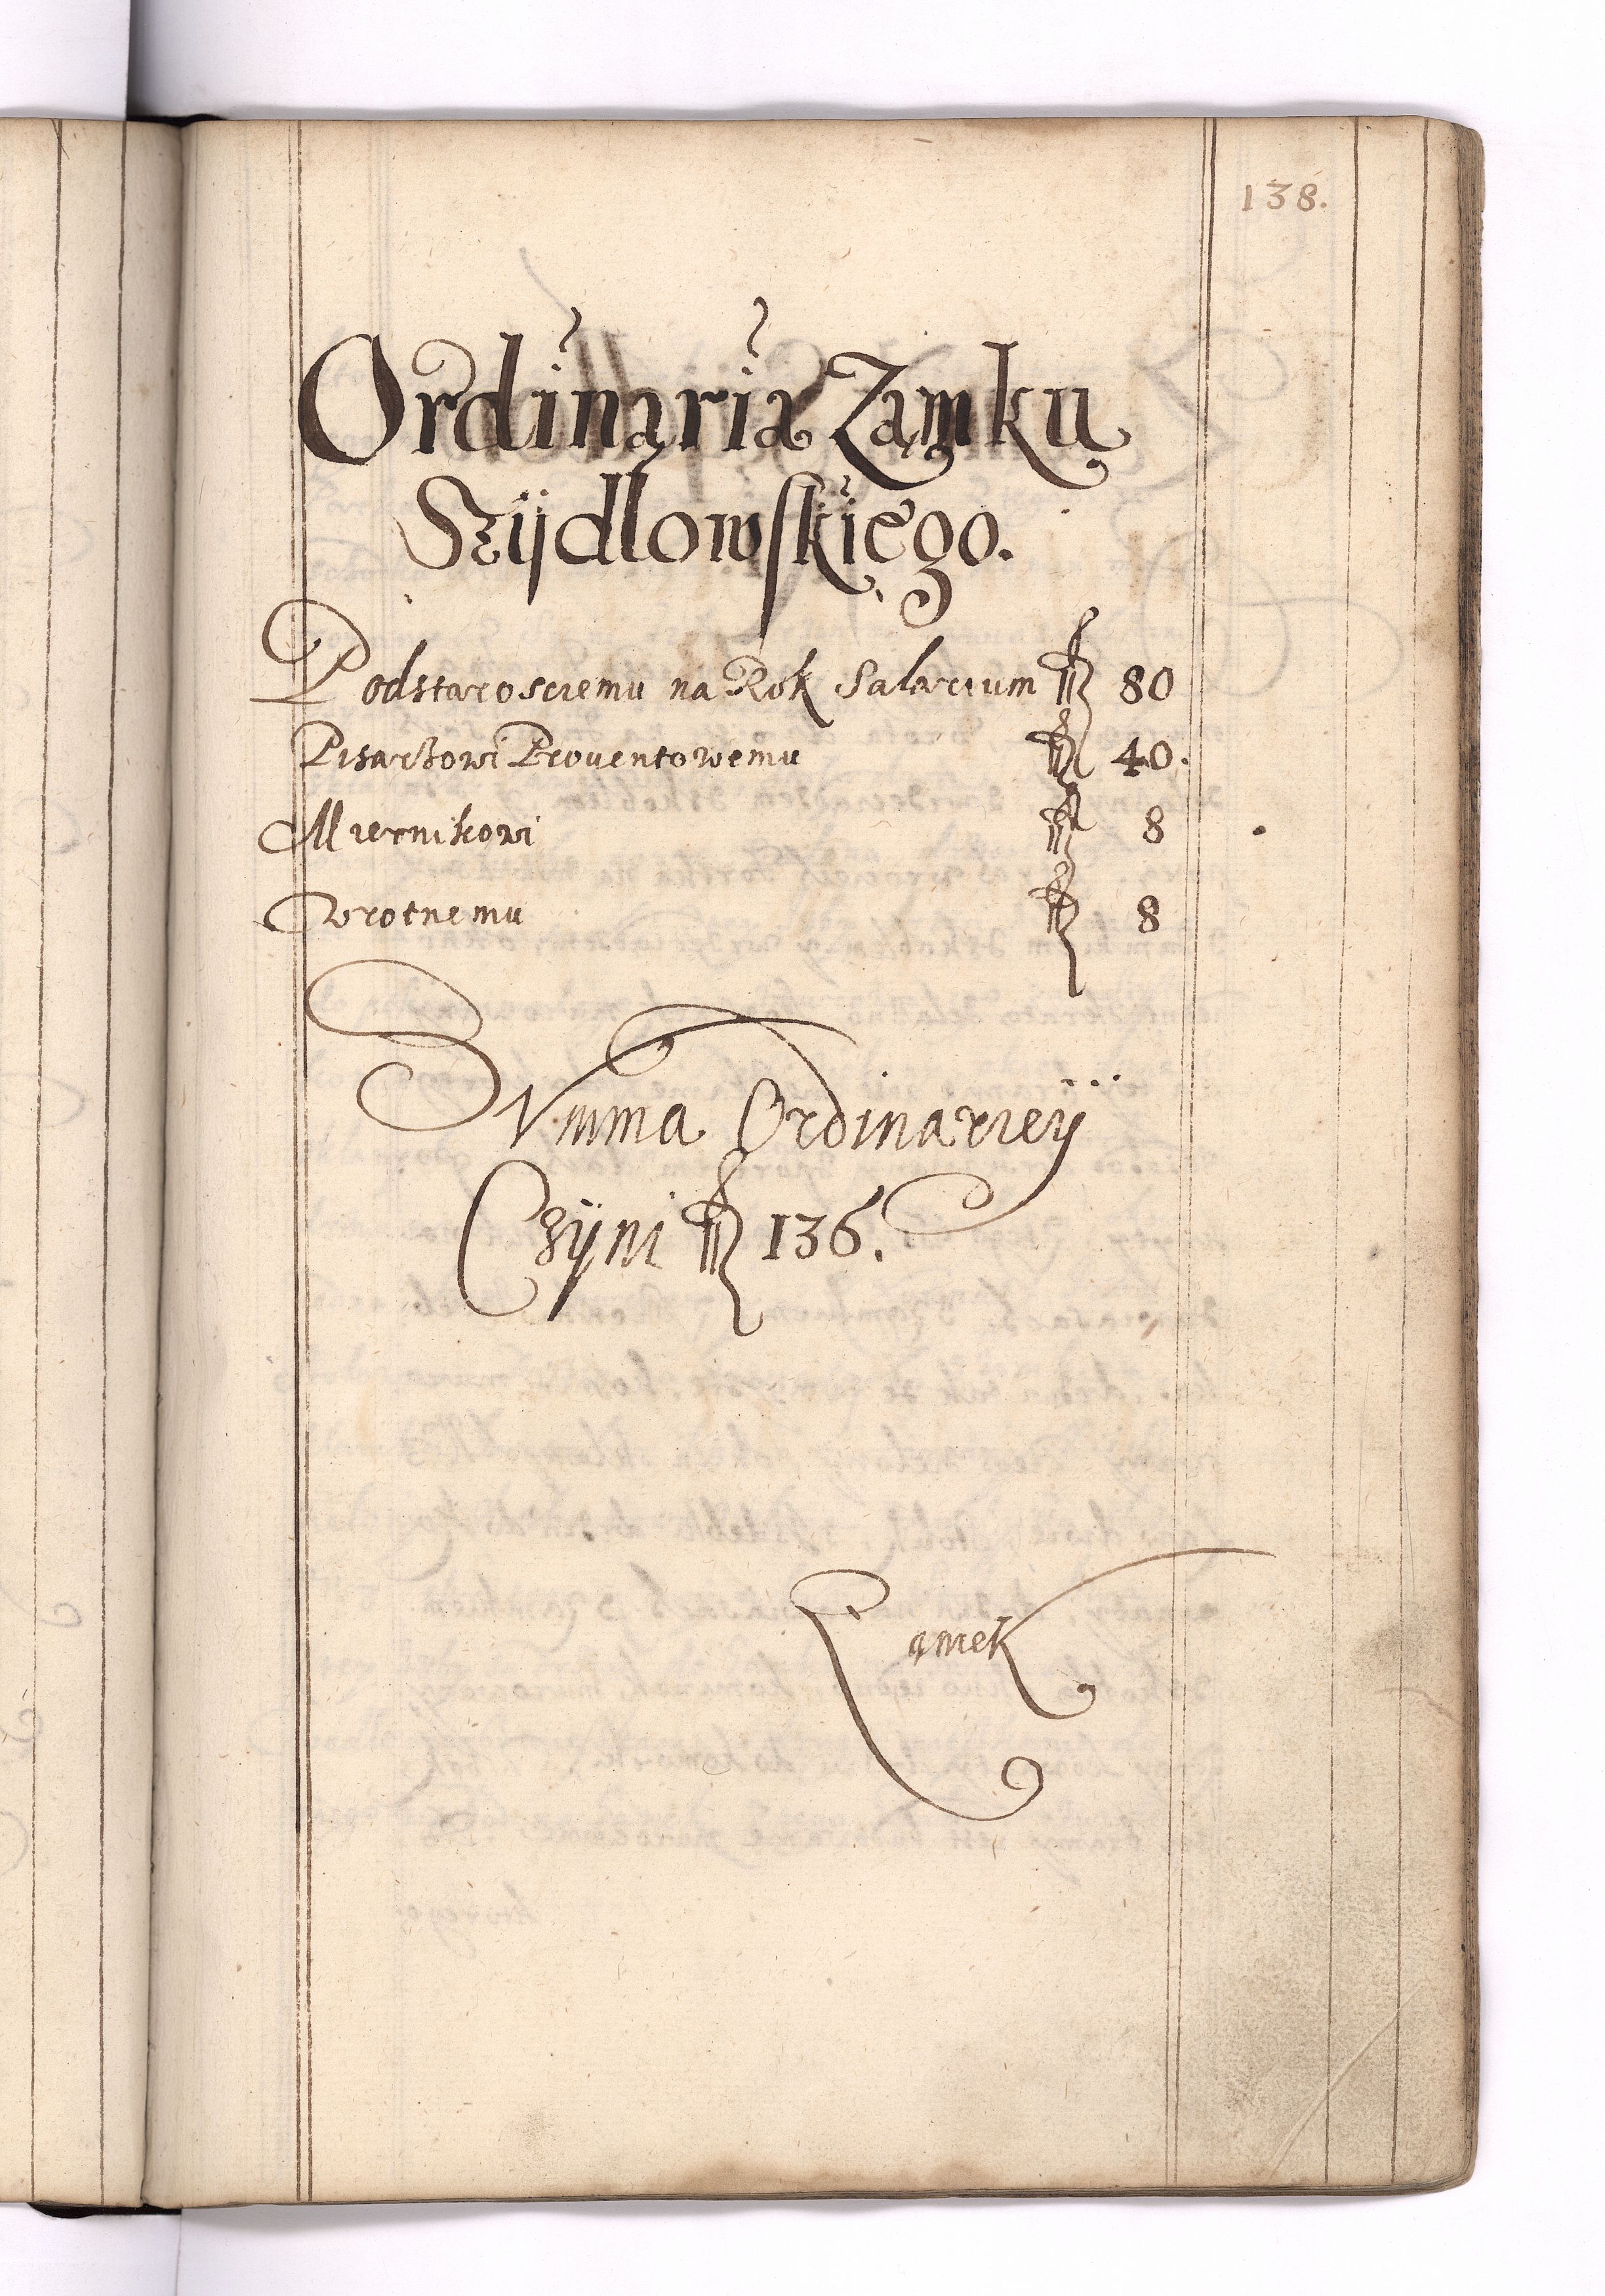 138.
Ordinaria Zamku
Szijdłowskiego.
Podstarosciemu na Rok Salarium fl 80
Pisarzowi Prouentowemu fl 40.
Miernikowi fl 8
Wrotnemu fl 8
Summa Ordinarieÿ
Czÿni fl 136.
Zamek